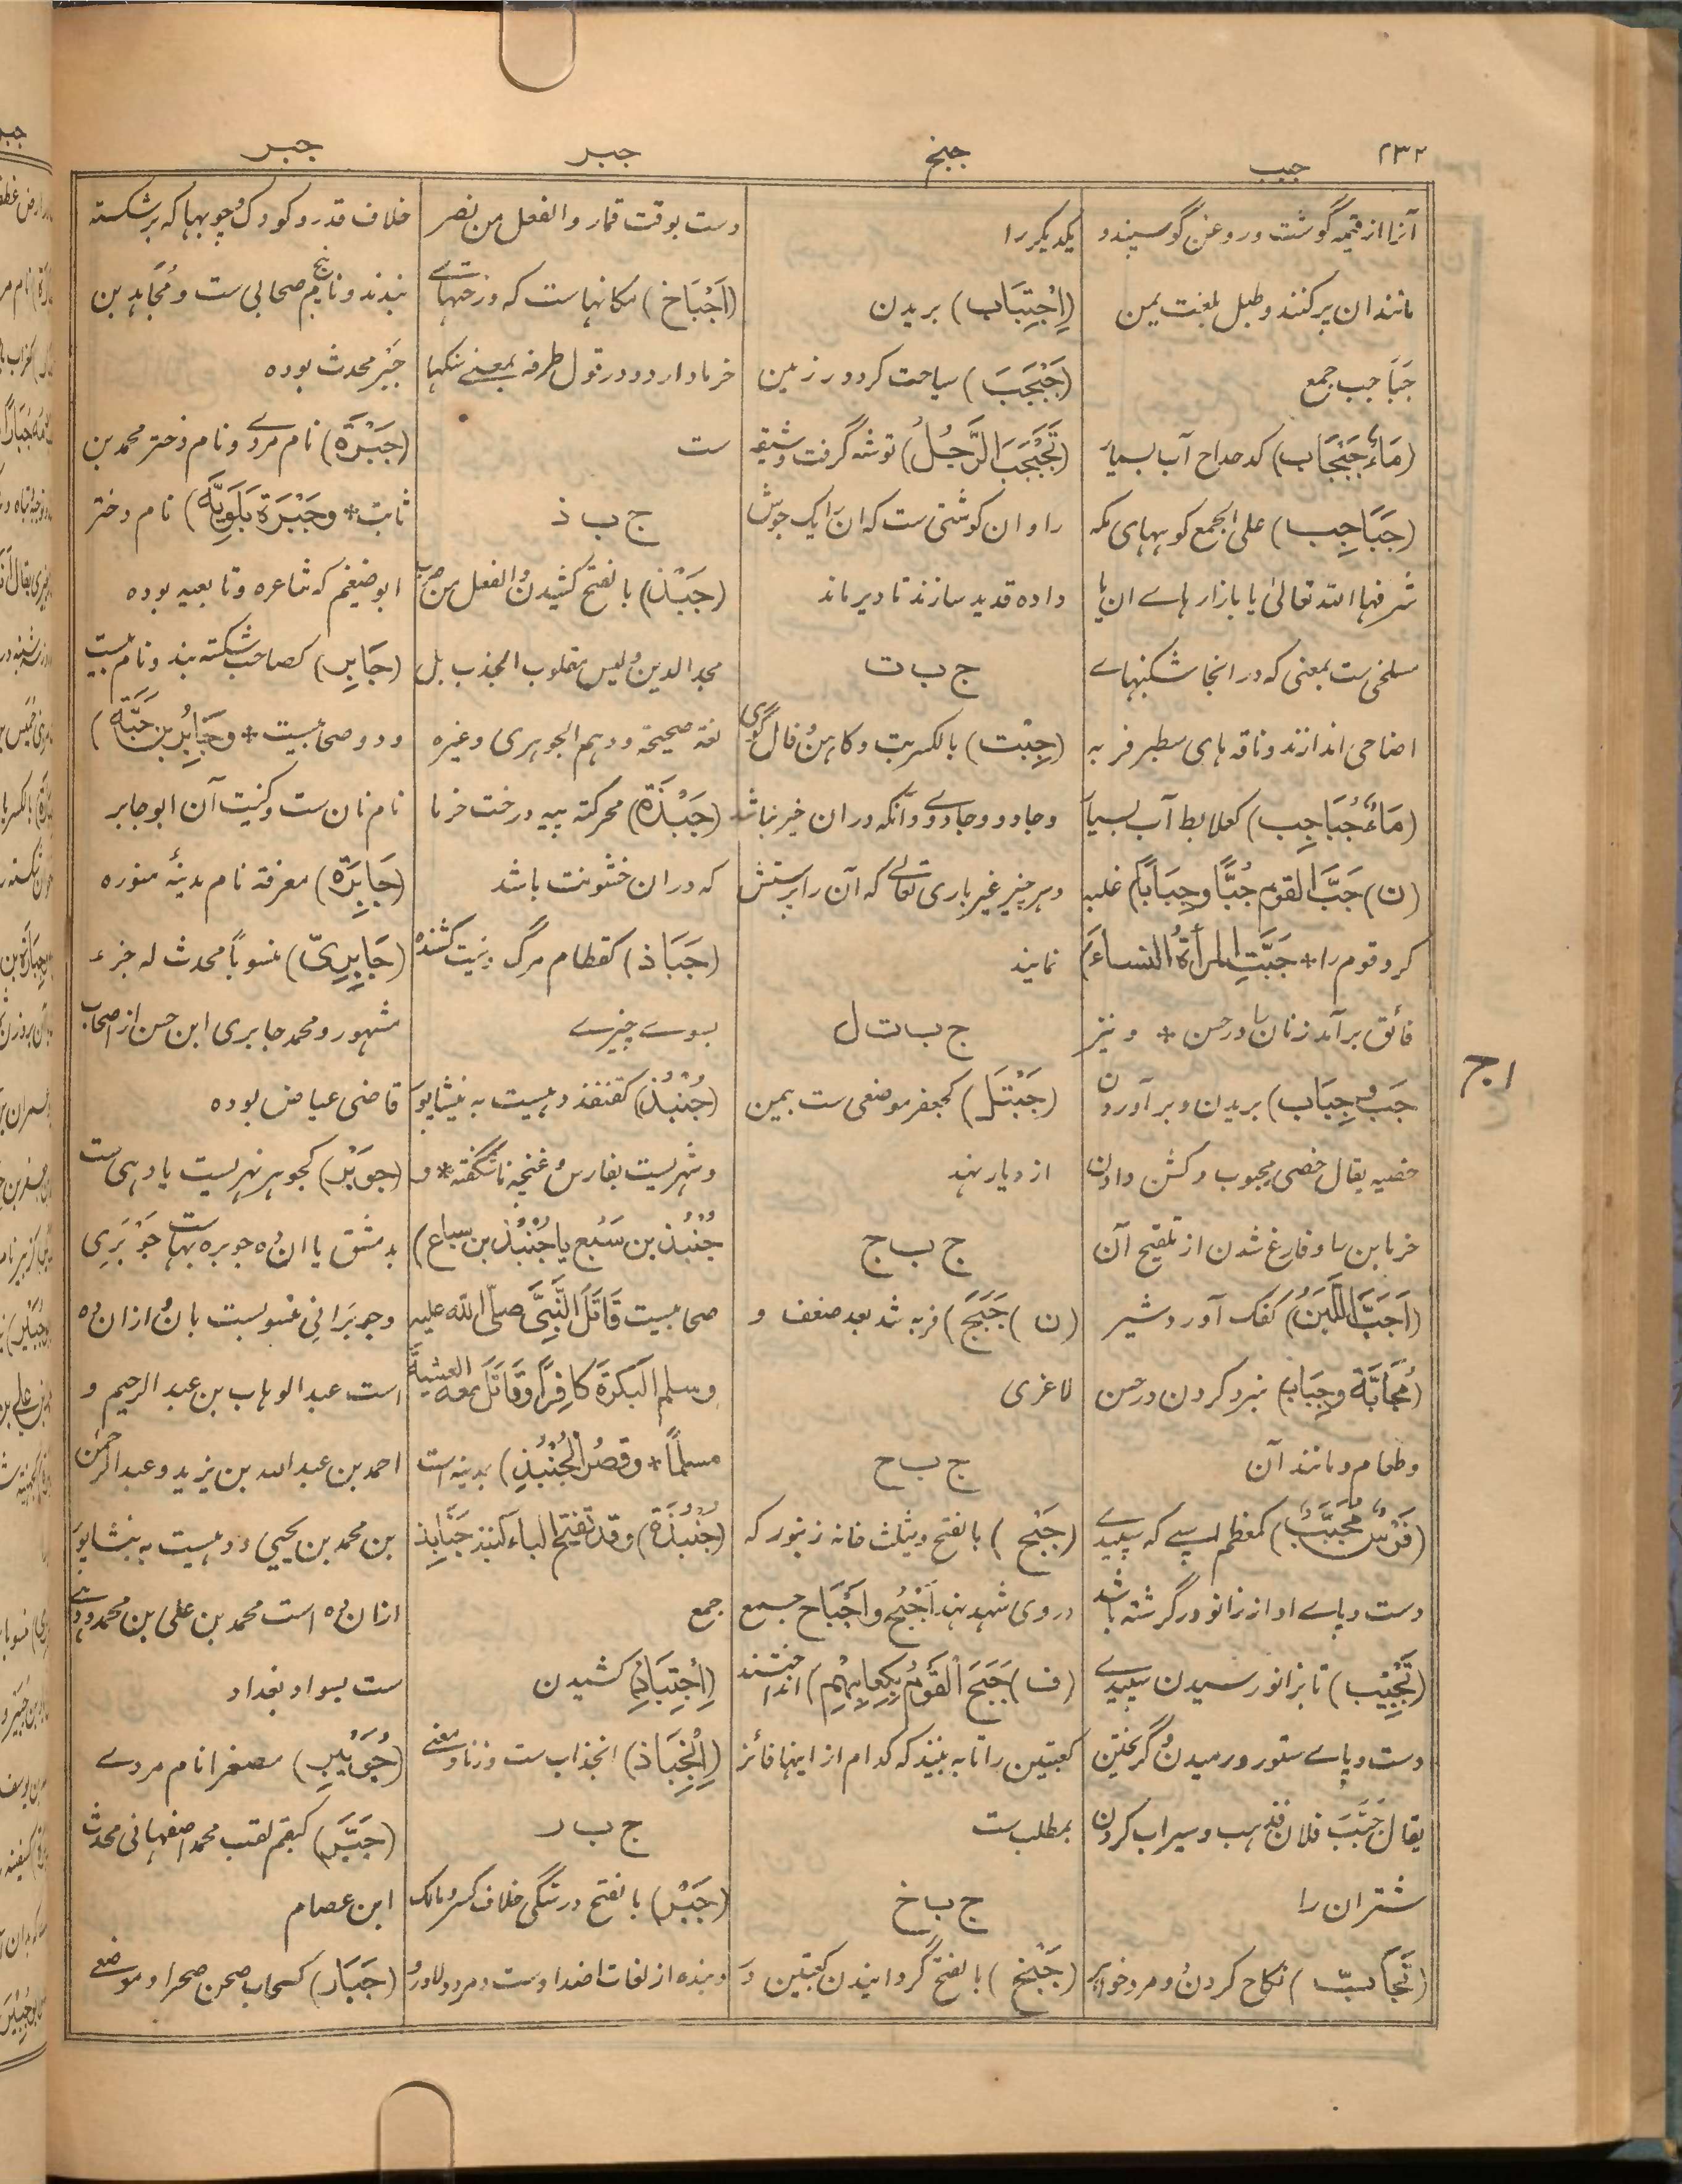 ۲۳۲
جبب
جبخ
جبر
جبر
آنرا از قیمه گوشت و روغن گوسپند و
مانند آن پر کنند و طبل بلغت یمن
جَبَاجِب جمع
(مَاءٌ جَبْجَاب) کدحداح آب بسیار
(جَبَاجِب) علی الجمع کوههای مکه
شرفها الله تعالیٰ یا بازارهاے آن یا
مسلخی ست بمنی که در انجا شکنبهاے
اضاحی اندازند و ناقه های سطبر فربه
(مَاءٌ جُبَاجِب) کعلابط آب بسیار
(ن) جَبَّ القوم جُبًّا و جِبَابًا) غلبه
کرد قوم را * جَبَّتِ المرأةُ النساءَ)
فائق برآمد زنان را در حسن * و نیز
جَبّ و جِبَاب) بریدن و برآوردن
خصیه یقال خصی مجبوب و کشن دادن
خرمابن را و فارغ شدن از تلقیح آن
(اَجَبَّ اللَّبَنُ) کفک آورد شیر
(مُجَابَّة و جِبَاب) نبرد کردن در حسن
و طعام و مانند آن
(فَرَسٌ مُجَبَّبٌ) کمعظم اسپے که سپیدے
دست و پاے او از زانو درگزشته باشد
(تَجْبِیْب) تا بزانو رسیدن سپیدے
دست و پاے ستور و رمیدن و گریختن
یقال جَبَّبَ فلان فذهب و سیراب کردن
شتران را
(تَجَابّ) نکاح کردن دو مرد خواهر
یکدیگر را
(اِجْتِبَاب) بریدن
(جَبْجَبَ) سیاحت کرد در زمین
(تَجَبْجَبَ الرَّجُلُ) توشه گرفت وشیقه
را و آن گوشتی ست که آن را یک جوش
داده قدید سازند تا دیر ماند
ج ب ت
(جِبْت) بالکسر بت و کاهن و فال گوی
و جادو و جادوے و آنکه در آن خیر نباشد
و هر چیز غیر باری تعالے که آن را پرستش
نمایند
ج ب ت ل
(جَبْتَل) کجعفر موضعی ست بیمن
از دیار نهد
ج ب ج
(ن) جَبَجَ) فربه شد بعد ضعف و
لاغری
ج ب ح
(جَبْح) بالفتح و یثلث خانه زنبور که
در وی شهد نهد اَجْبُح و اَجْبَاح جمع
(ف) جَبَحَ الْقَوْمُ بِکِعَابِهِمْ) انداختند
کعبتین را تا به بینند که کدام از اینها فائز
بمطلب ست
ج ب خ
(جَبْخ) بالفتح گردانیدن کعبتین در
دست بوقت قمار و الفعل من نصر
(اَجْبَاخ) مکانهاست که درختهاے
خرما دارد و در قول طرفه بمعنے سنگها
ست
ج ب ذ
(جَبْذ) بالفتح کشیدن و الفعل من ضرب
مجد الدین و لیس مقلوب الجذب بل
لغة صحیحة و وهم الجوهری و غیره
(جَبَذَة) محرکة پیه درخت خرما
که در آن خشونت باشد
(جَبَاذ) کقطام مرگ و نیت کشنده
بسوے چیزے
(جُنْبُذ) کقنفذ دهیست به نیشاپور
و شهریست بفارس و غنچه ناشگفته * و
جُنْبُذ بن سَبُع یا جُنْبُذ بن سباع)
صحابیست قَاتَلَ النَّبِیَّ صلّی الله علیه
و سلم الْبُکْرَةَ کَافِرًا وَ قَاتَلَ معه العشیةَ
مسلمًا * و قصرُ الْجُنْبُذِ) بمدینه است
(جُنْبُذَة) و قد تفتح الباء کُنبذ جَنَابِذ
جمع
(اِجْتِبَاذ) کشیدن
(اِنْجِبَاذ) انجذاب ست وزنا و معنے
ج ب ر
(جَبْر) بالفتح درستگی خلاف کسر و ملک
و بنده از لغات اضداد ست و مرد دلاور و
خلاف قدر و کودک و چوبها که بر شکسته
بندند و نام صحابی ست و مُجَاهِد بن
جَبْر محدث بوده
(جَبْرَة) نام مردے و نام دختر محمد بن
ثابت * و جَبْرَة بَلَوِیَّة) نام دختر
ابو ضیغم که شاعره و تابعیه بوده
(جَابِر) کصاحب شکسته بند و نام بیست
و دو صحابیست * و جَابِرُ بن حَبَّة)
نام نان ست و کنیت آن ابو جابر
(جَابِرَة) معرفة نام مدینهٔ منوره
(جَابِرِیّ) منسوباً محدث له جزء
مشهور و محمد جابری ابن حسن از اصحاب
قاضی عیاض بوده
(جَوبَر) کجوهر نهریست یا دهی ست
بدمشق یا آن ده جوبره بهاست جَوْبَرِی
و جوبرَانِی منسوبست بآن و ازان ده
است عبد الوهاب بن عبد الرحیم و
احمد بن عبد الله بن یزید و عبد الرحمٰن
بن محمد بن یحیی و دهیست به نیشاپور
ازان ده است محمد بن علی بن محمد و دهے
ست بسواد بغداد
(جُوَیْبِر) مصغرا نام مردے
(جَبَّر) کبقم لقب محمد اصفهانی محدث
ابن عصام
(جَبَار) کسحاب صحن صحرا و موضعے